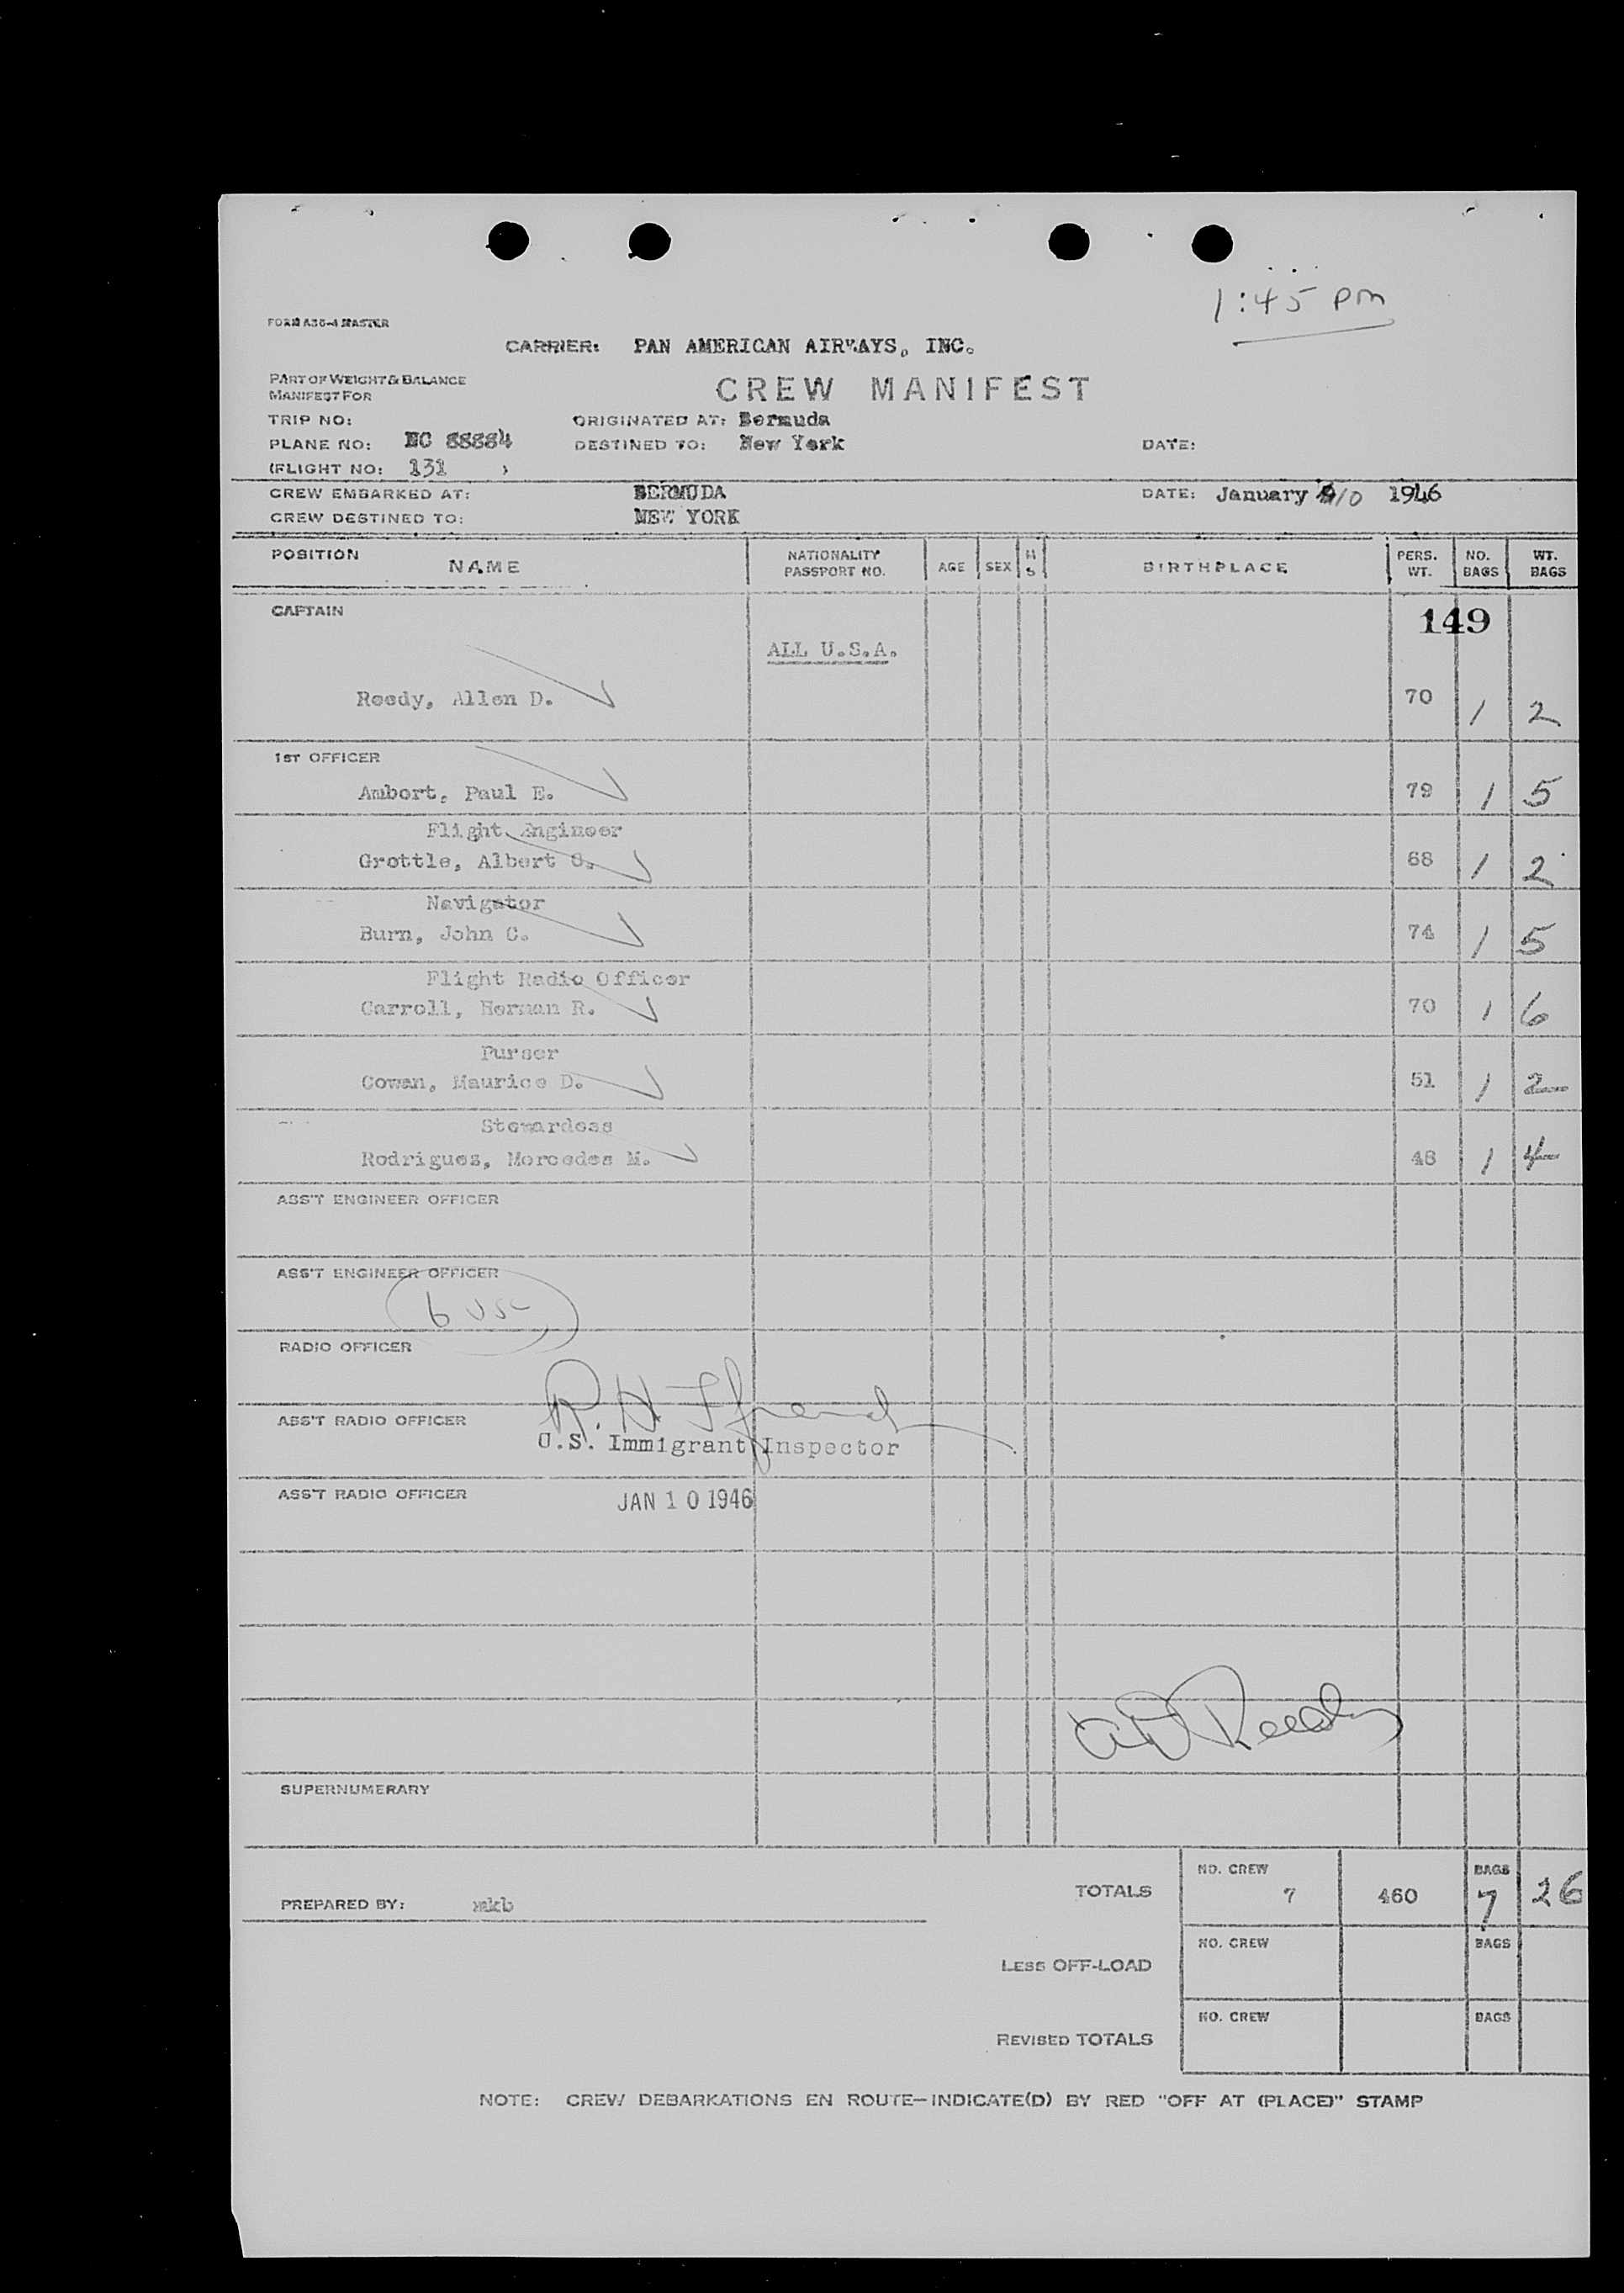 1:45 pm
FORM A30-4 MASTER
CARRIER: PAN AMERICAN AIRWAYS, INC.
PART OF WEIGHT & BALANCE
MANIFEST FOR
CREW MANIFEST
TRIP NO: ORIGINATED AT: Bermuda
PLANE NO: NC 88884 DESTINED TO: New York DATE:
(FLIGHT NO: 131 )
CREW EMBARKED AT: BERMUDA DATE: January 10 1946
CREW DESTINED TO: NEW YORK
POSITION NAME NATIONALITY PASSPORT NO. AGE SEX M S BIRTHPLACE PERS. WT. NO. BAGS WT. BAGS
CAPTAIN 149
ALL U.S.A.
Reedy, Allen D. 70 1 2
1ST OFFICER
Ambort, Paul E. 79 1 5
Flight Engineer
Grottle, Albert 68 1 2
Navigator
Burn, John C. 74 1 5
Flight Radio Officer
Carroll, Herman R. 70 1 6
Purser
Cowan, Maurice D. 51 1 2
Stewardess
Rodriguez, Mercedes M. 48 1 4
ASS'T ENGINEER OFFICER
ASS'T ENGINEER OFFICER
6 USC
RADIO OFFICER
R. H.
ASS'T RADIO OFFICER
U.S. Immigrant Inspector
ASS'T RADIO OFFICER JAN 10 1946
A D Reedy
SUPERNUMERARY
TOTALS NO. CREW 7 460 BAGS 7 26
PREPARED BY: mkb
LESS OFF-LOAD NO. CREW BAGS
REVISED TOTALS NO. CREW BAGS
NOTE: CREW DEBARKATIONS EN ROUTE—INDICATE(D) BY RED "OFF AT (PLACE)" STAMP